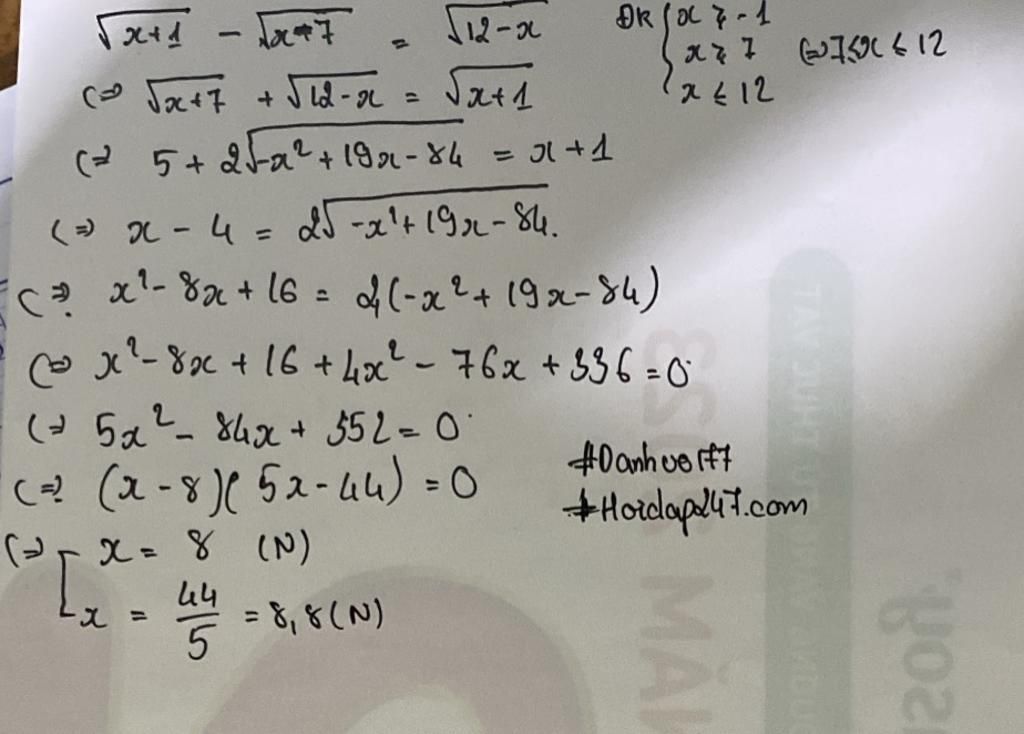 √x+1 - √x-7 = √12-x ĐK { x ≥ -1
x ≥ 7 (=> 7≤x ≤ 12
x ≤ 12
(=> √x+7 + √12-x = √x+1
(=> 5 + 2√-x² + 19x - 84 = x + 1
(=> x - 4 = 2√-x² + 19x - 84.
(=> x² - 8x + 16 = 4(-x² + 19x - 84)
(=> x² - 8x + 16 + 4x² - 76x + 336 = 0
(=> 5x² - 84x + 352 = 0
(=> (x - 8)(5x - 44) = 0
(=> [ x = 8 (N)
x = 44/5 = 8,8 (N)
#Hoidap247.com